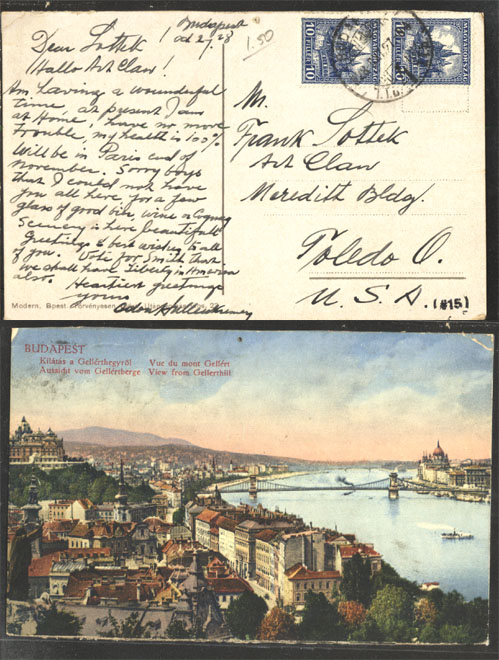 Budapest
Oct 2/28
1.50
Dear Sottek
Hallo Art Claw!
Am having a wounderful
time, at present I am
at Home, I have no more
trouble, my health is 100%
Will be in Paris end of
november. Sorry boys
that I could not have
you all here for a few
glass of good bier, wine or Cognag
Scenery is here beautiful
Greetings & best wishes to all
of you. Vote for Smith that
we shall have Liberty in America
also.
Heartiest greetings
yours
Modern, Bpest
MAGYARORSZÁG
10 10
MAGYARORSZÁG
10
Mr.
Frank Sottek
Art Claw
Meredith Bldg.
Toledo O.
U. S. A.
(815)
BUDAPEST
Kilátás a Gellérthegyről Vue du mont Gellért
Aussicht vom Gellértberge View from Gellerthill